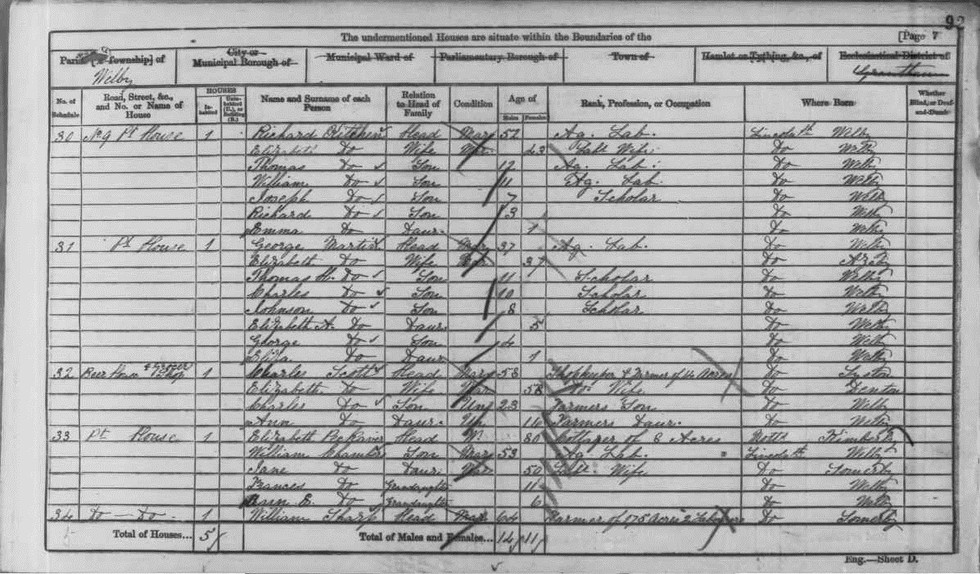 92
The undermentioned Houses are situate within the Boundaries of the [Page 7
Parish [or Township] of City or Municipal Borough of Municipal Ward of Parliamentary Borough of Town of Hamlet or Tything, &c., of Ecclesiastical District of
Welby Grantham
No. of Schedule Road, Street, &c., and No. or Name of House HOUSES Inhabited Uninhabited (U.), or Building (B.) Name and Surname of each Person Relation to Head of Family Condition Age of Males Females Rank, Profession, or Occupation Where Born Whether Blind, or Deaf-and-Dumb
30 No 9 Pt House 1 Richard Head Mar 52 Ag. Lab. Lincolnsh Welby
Elizabeth Do Wife Mar 43 Labs Wife Do Welby
Thomas Do Son 12 Ag. Lab. Do Welby
William Do Son 11 Ag. Lab. Do Welby
Joseph Do Son 7 Scholar Do Welby
Richard Do Son 3 Do Welby
Emma Do Daur 1 Do Welby
31 Pt House 1 George Martin Head Mar 37 Ag. Lab. Do Welby
Elizabeth Do Wife Mar 37 Do
Thomas H. Do Son 11 Scholar Do Welby
Charles Do Son 10 Scholar Do Welby
Johnson Do Son 8 Scholar Do Welby
Elizabeth A. Do Daur 5 Do Welby
George Do Son 4 Do Welby
Eliza Do Daur 1 Do Welby
32 Beer House & Grocer Shop 1 Charles Scott Head Mar 58 Shopkeeper & Farmer of 14 Acres Do
Elizabeth Do Wife Mar 58 Do Wife Do Denton
Charles Do Son Un 23 Farmers Son Do Welby
Ann Do Daur Un 16 Farmers Daur. Do Welby
33 Pt House 1 Elizabeth Head W 80 Cottager of 6 Acres Notts
William Chambers Son Mar 53 Ag. Lab. Lincolnsh Welby
Jane Do Daur Mar 50 Labs Wife Do Somerby
Frances Do Granddaughter 11 Do Welby
E. Do Granddaughter 6 Do Welby
34 Do - Do 1 William Sharp Head Mar 64 Farmer of 175 Acres 2 Do Somerby
Total of Houses... 5 Total of Males and Females... 14 11
Eng.—Sheet D.